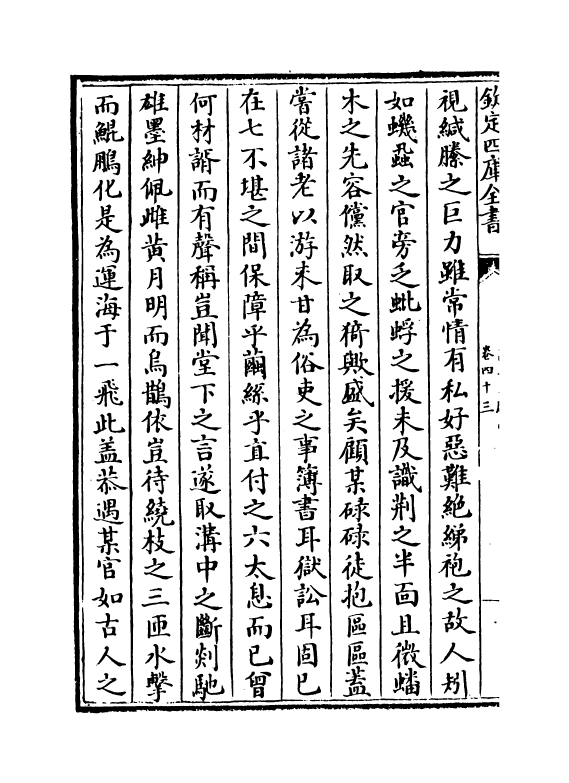 欽定四庫全書
卷四十三
視緘縢之巨力雖常情有私好惡難絶綈袍之故人矧
如蟣蝨之官旁乏蚍蜉之援未及識荆之半面且微蟠
木之先容儻然取之猗歟盛矣顧某碌碌徒抱區區蓋
嘗從諸老以游未甘為俗吏之事簿書耳獄訟耳固已
在七不堪之間保障乎繭絲乎直付之六太息而已曾
何材諝而有聲稱豈聞堂下之言遂取溝中之斷剡馳
雄墨紳佩雌黄月明而烏鵲依豈待繞枝之三匝水擊
而鯤鵬化是為運海于一飛此盖恭遇某官如古人之